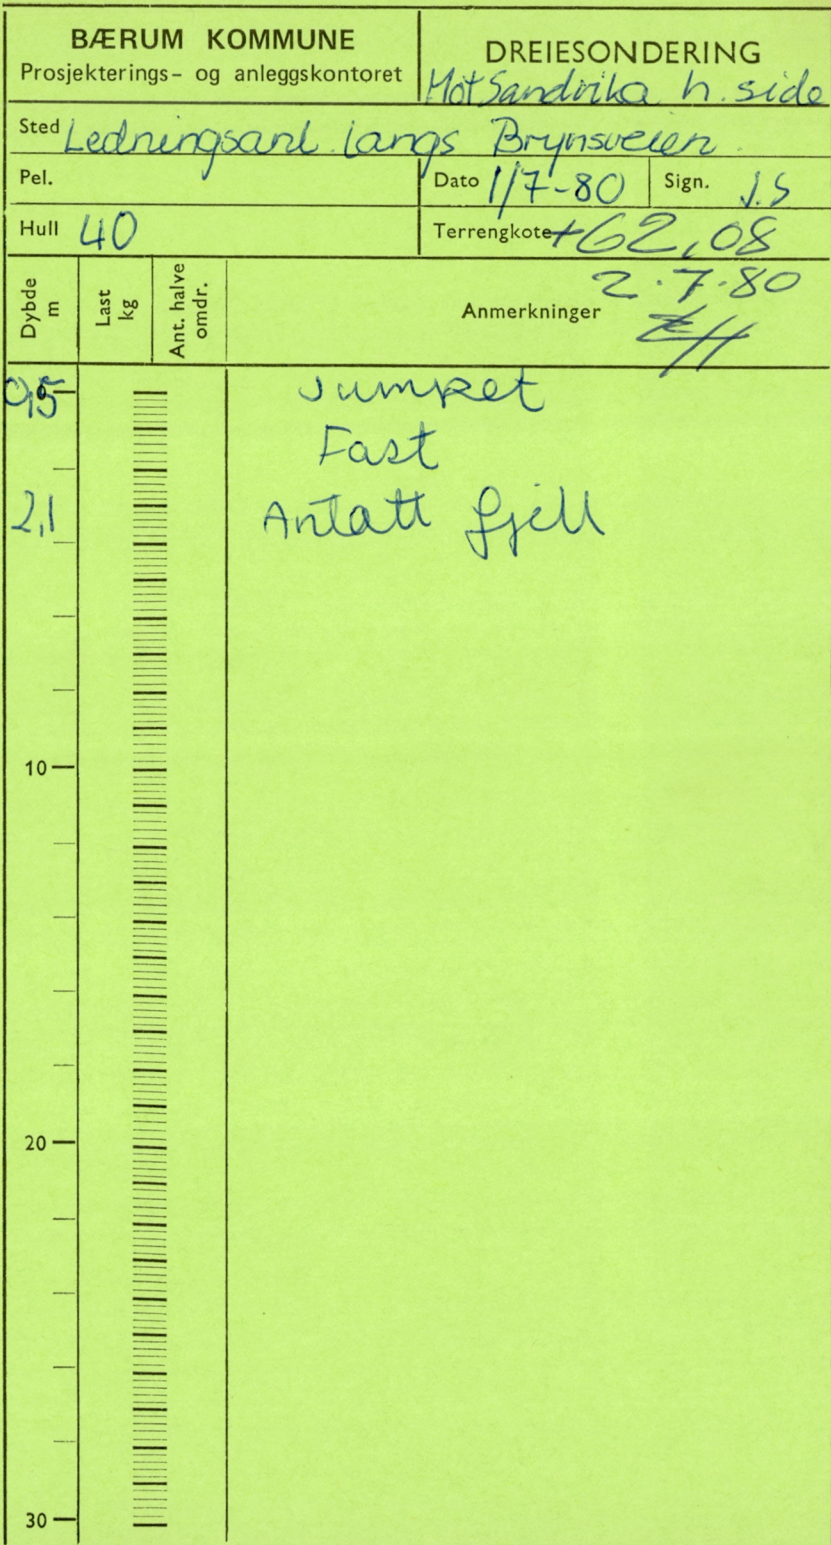 BÆRUM KOMMUNE
Prosjekterings- og anleggskontoret
DREIESONDERING
Mot Sandvika h. side
Sted Ledningsanl. langs Brynsveien.
Pel.
Dato 1/7-80
Sign. J.S
Hull 40
Terrengkote +62,08
2.7.80
Dybde m
Last kg
Ant. halve omdr.
Anmerkninger
EH
0,5 Jumpet
Fast
2,1 Antatt fjell
10
20
30